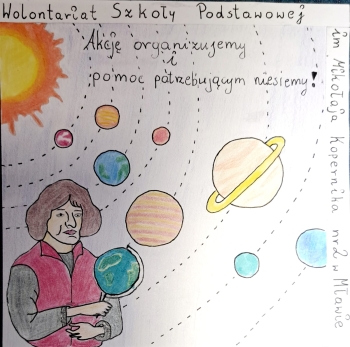 Wolontariat Szkoły Podstawowej
im Mikołaja Kopernika nr 2 w Mławie
Akcje organizujemy
i
pomoc potrzebującym niesiemy!